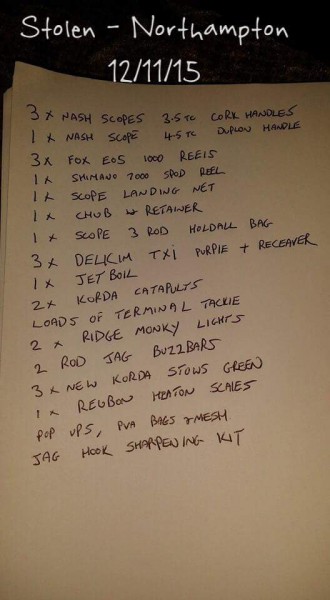 Stolen - Northampton
12/11/15
3 x NASH SCOPES 3.5 TC CORK HANDLES
1 x NASH SCOPE 4.5 TC DUPLON HANDLE
3 x FOX EOS 1000 REELS
1 x SHIMANO 7000 SPOD REEL
1 x SCOPE LANDING NET
1 x CHUB RETAINER
1 x SCOPE 3 ROD HOLDALL BAG
3 x DELKIM TXI PURPLE + RECEAVER
1 x JETBOIL
2 x KORDA CATAPULTS
LOADS OF TERMINAL TACKLE
2 x RIDGE MONKY LIGHTS
2 ROD JAG BUZZBARS
3 x NEW KORDA STOWS GREEN
1 x REUBON HEATON SCALES
POP UPS, PVA BAGS & MESH
JAG HOOK SHARPENING KIT